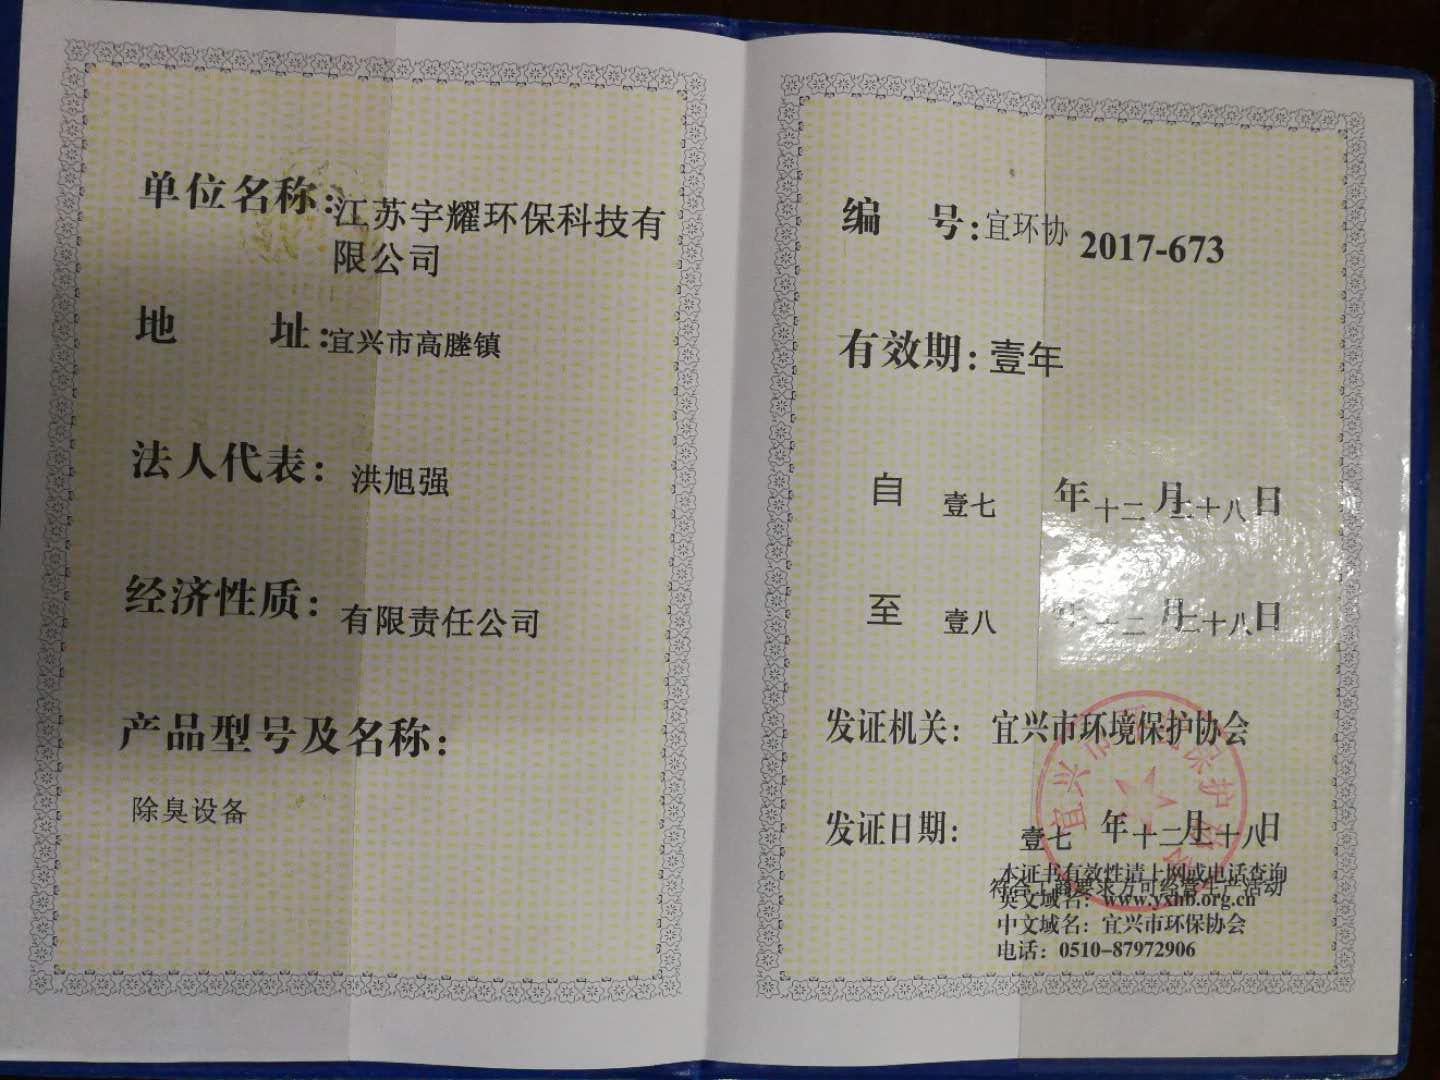 单位名称:江苏宇耀环保科技有
限公司
地 址:宜兴市高塍镇
法人代表: 洪旭强
经济性质: 有限责任公司
产品型号及名称:
除臭设备
编 号:宜环协 2017-673
有效期:壹年
自 壹七 年十二月二十八日
至 壹八 年十二月二十八日
发证机关: 宜兴市环境保护协会
发证日期: 壹七 年十二月二十八日
本证书有效性请上网或电话查询
符合工商要求方可经营生产活动
英文域名: www.yxhb.org.cn
中文域名: 宜兴市环保协会
电话: 0510-87972906